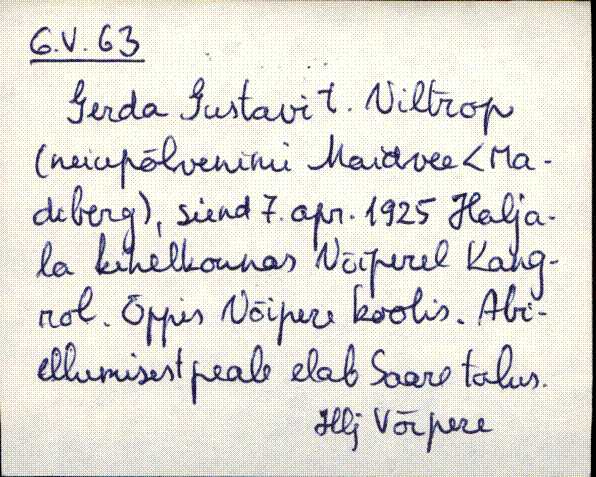 6.V.63
Gerda Gustavi t. Viltrop
(neiupõlvenimi Maidvee < Ma-
deberg), siind 7. apr. 1925 Halja-
la kihelkonnas Võiperel Kang-
rol. Õppis Võipere koolis. Abi-
ellumisest peale elab Saare talus.
Hlj Võipere